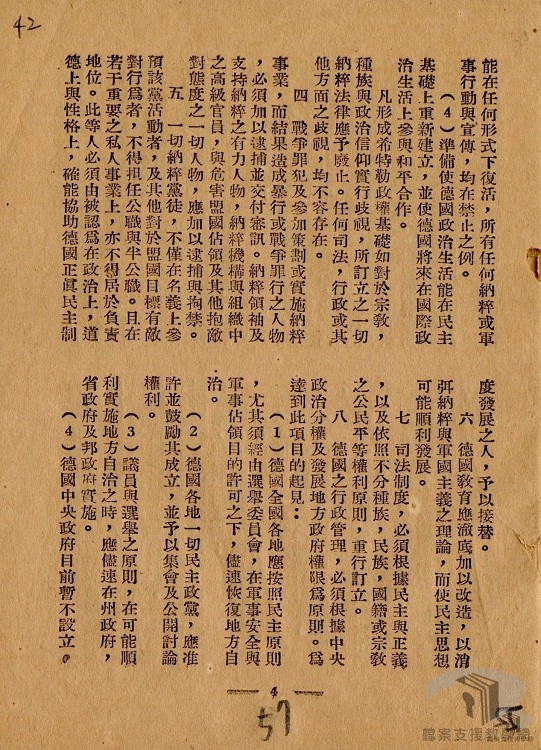 42
能在任何形式下復活，所有任何納粹或軍
事行動與宣傳，均在禁止之例。
（4）準備使德國政治生活能在民主
基礎上重新建立，並使德國將來在國際政
治生活上參與和平合作。
凡形成希特勒政權基礎如對於宗教，
種族與政治信仰實行歧視，所訂立之一切
納粹法律應予廢止。任何司法，行政或其
他方面之歧視，均不容存在。
四　戰爭罪犯及參加策劃或實施納粹
事業，而結果造成暴行或戰爭罪行之人物
，必須加以逮捕並交付審訊。納粹領袖及
支持納粹之有力人物，納粹機構與組織中
之高級官員，與危害盟國佔領及其他抱敵
對態度之一切人物，應加以逮捕與拘禁。
五　一切納粹黨徒，不僅在名義上參
預該黨活動者，及其他對於盟國目標有敵
對行爲者，不得担任公職與半公職。且在
若干重要之私人事業上，亦不得居於負責
地位。此等人必須由被認爲在政治上，道
德上與性格上，確能協助德國正眞民主制
度發展之人，予以接替。
六　德國敎育應澈底加以改造，以消
弭納粹與軍國主義之理論，而使民主思想
可能順利發展。
七　司法制度，必須根據民主與正義
，以及依照不分種族，民族，國籍或宗敎
之公民平等權利原則，重行訂立。
八　德國之行政管理，必須根據中央
政治分權及發展地方政府權限爲原則。爲
達到此項目的起見：
（1）德國全國各地應按照民主原則
，尤其須經由選舉委員會，在軍事安全與
軍事佔領目的許可之下，儘速恢復地方自
治。
（2）德國各地一切民主政黨，應准
許並鼓勵其成立，並予以集會及公開討論
權利。
（3）議員與選舉之原則，在可能順
利實施地方自治之時，應儘速在州政府，
省政府及邦政府實施。
（4）德國中央政府目前暫不設立。
4
57
55
檔案支援教學網